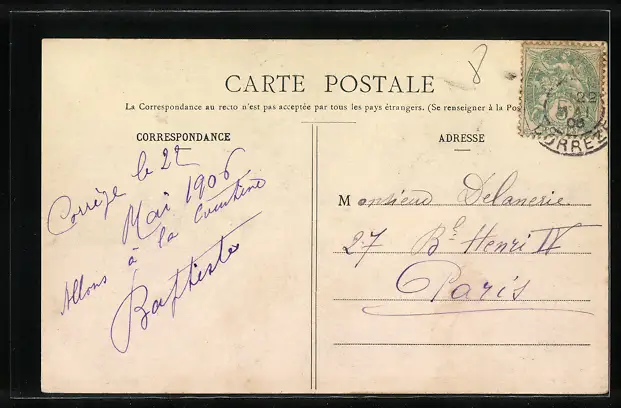 CARTE POSTALE
8
La Correspondance au recto n'est pas acceptée par tous les pays étrangers. (Se renseigner à la Pos
CORRESPONDANCE
Corrèze le 22
Mai 1906
Allons à la
Baptiste
ADRESSE
Monsieur Delanerie
27 Bd Henri IV
Paris
22
06
CORREZE